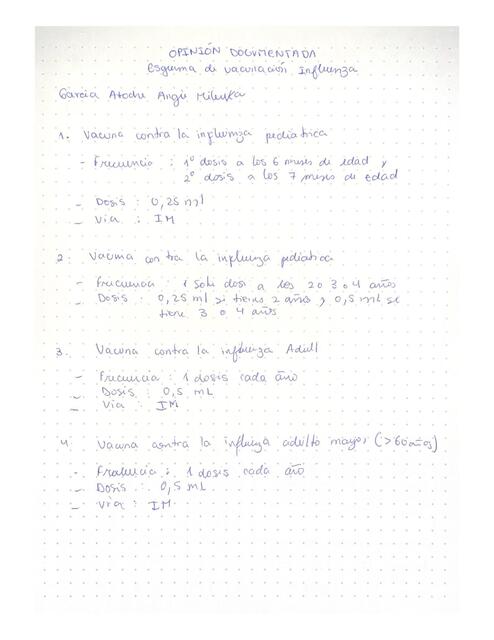 OPINIÓN DOCUMENTADA
Esquema de vacunación Influenza
Garcia Atoche Angie Milenka
1. Vacuna contra la influenza pediatrica
- Frecuencia : 1º dosis a los 6 meses de edad y
2º dosis a los 7 meses de edad
- Dosis : 0,25 ml
- Via : IM
2. Vacuna contra la influenza pediatrica
- Frecuencia : 1 sola dosi a los 2 o 3 o 4 años
- Dosis : 0,25 ml si tiene 2 años y 0,5 ml si
tiene 3 o 4 años
3. Vacuna contra la influenza Adult
- Frecuencia : 1 dosis cada año
- Dosis : 0,5 mL
- Via : IM
4. Vacuna contra la influenza adulto mayor (>60 años)
- Frecuencia : 1 dosis cada año
- Dosis : 0,5 mL
- Via : IM